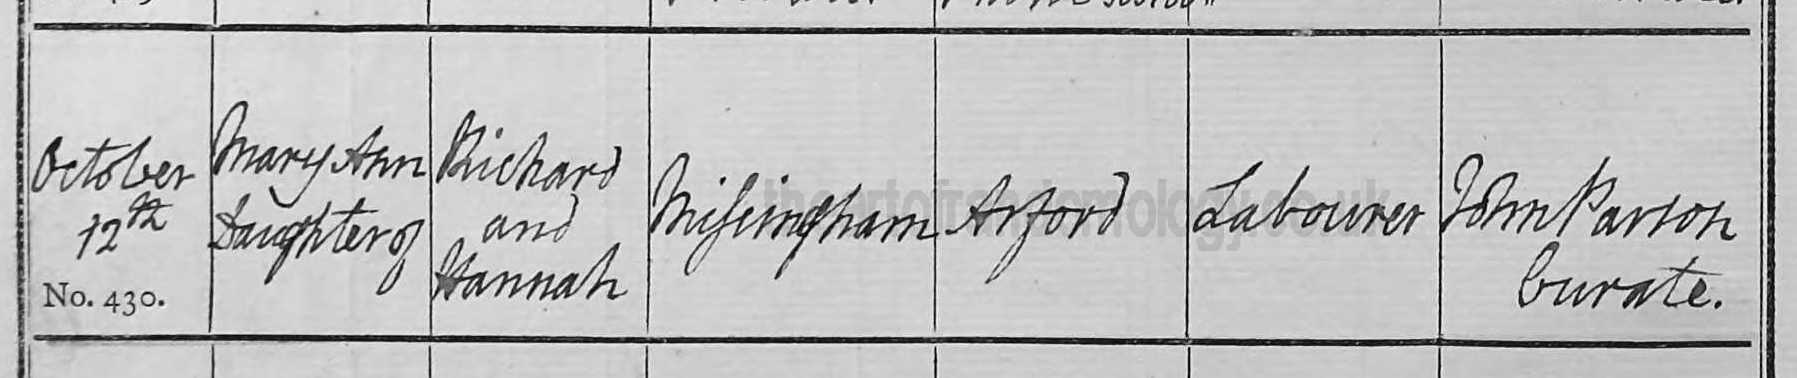 October
12th
No. 430.
Mary Ann
Daughter of
Richard
and
Hannah
Missingham
Arford
Labourer
John Parson
Curate.
theartofrandomology.co.uk